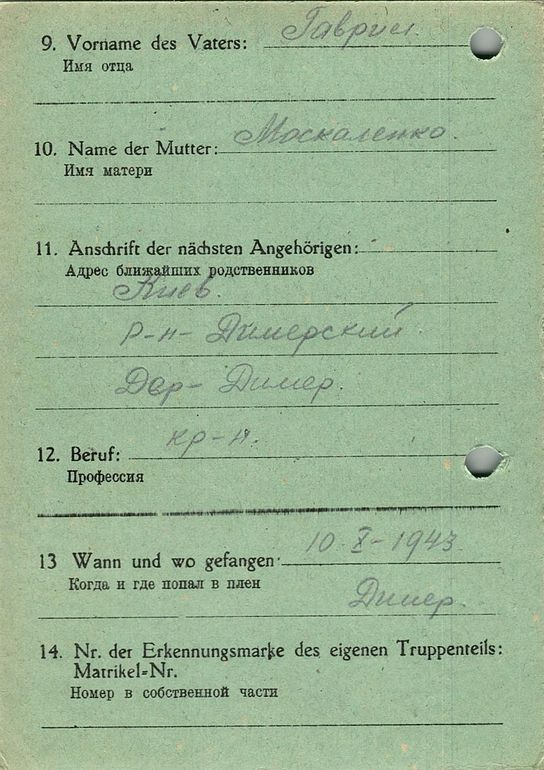 9. Vorname des Vaters: Гаврил.
Имя отца
10. Name der Mutter: Москаленко.
Имя матери
11. Anschrift der nächsten Angehörigen:
Адрес ближайших родственников
Киев.
р-н- Димерский
Дер- Димер.
12. Beruf: кр-н.
Профессия
13 Wann und wo gefangen: 10 X-1943
Когда и где попал в плен
Димер.
14. Nr. der Erkennungsmarke des eigenen Truppenteils:
Matrikel-Nr.
Номер в собственной части